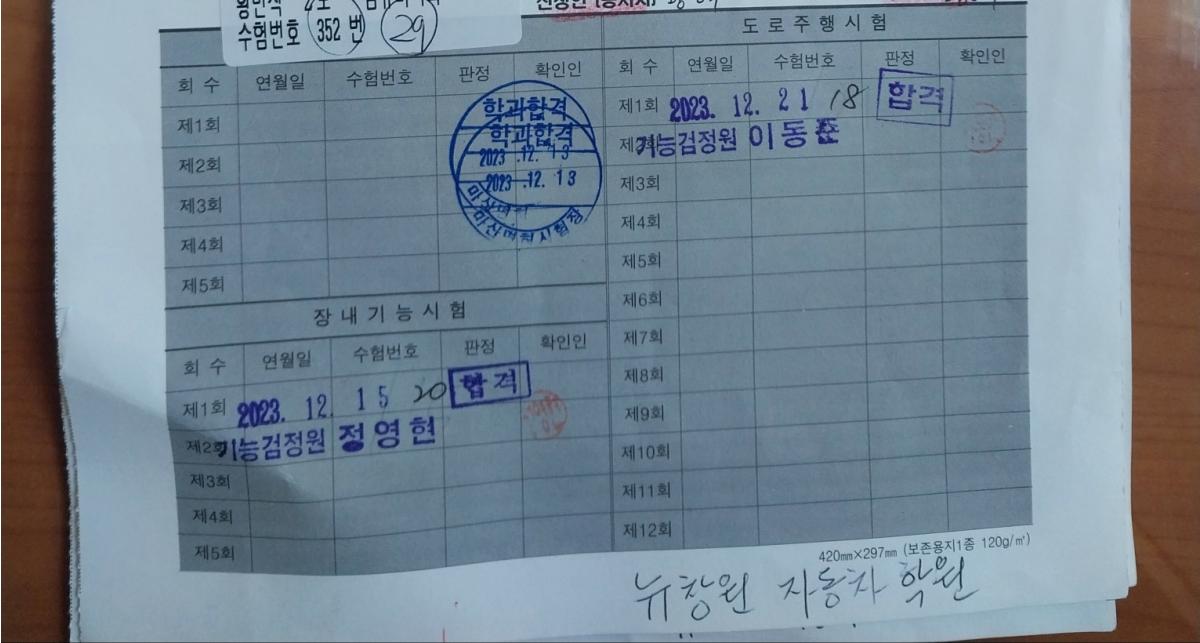 수험번호 352번 29
도로주행시험
회 수 연월일 수험번호 판정 확인인
회 수 연월일 수험번호 판정 확인인
제1회
제2회
제3회
제4회
제5회
학과합격
학과합격
2023 .12. 13
2023 .12. 13
마산면허시험장
장내기능시험
회 수 연월일 수험번호 판정 확인인
제1회 2023. 12. 15 20 합격
제2회 기능검정원 정영현
제3회
제4회
제5회
제1회 2023. 12. 21 18 합격
기능검정원 이동준
제3회
제4회
제5회
제6회
제7회
제8회
제9회
제10회
제11회
제12회
420㎜×297㎜ (보존용지1종 120g/㎡)
뉴창원 자동차 학원